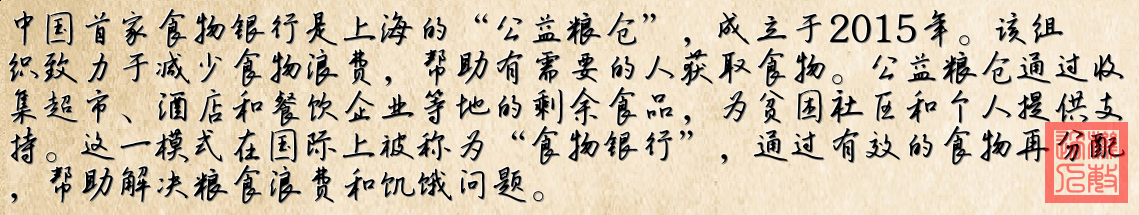 中国首家食物银行是上海的“公益粮仓”，成立于2015年。该组
织致力于减少食物浪费，帮助有需要的人获取食物。公益粮仓通过收
集超市、酒店和餐饮企业等地的剩余食品，为贫困社区和个人提供支
持。这一模式在国际上被称为“食物银行”，通过有效的食物再分配
，帮助解决粮食浪费和饥饿问题。